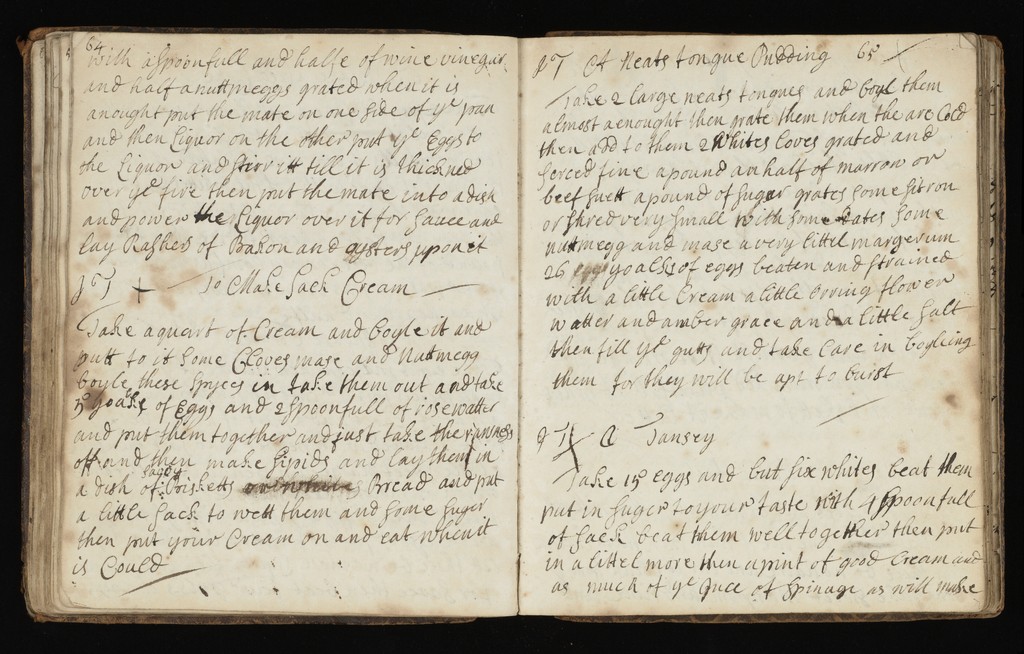 64
with a spoonfull and halfe of wine vinegar
and half a nuttmeggs grated when it is
anought put the mate on one side of ye pan
and then Liquor on the other put ye Eggs to
the Liquor and stirr itt till it is thickned
over ye fire then put the mate into a dish
and power the Liquor over it for sauce and
lay Rashers of Bakon and oysters upon it
To Make Sack Cream
Take a quart of Cream and boyle it and
putt to it some Cloves mase and Nuttmegg
boyle these spyces in take them out and take
of Eggs and 2 spoonfull of rosewatter
and put them together and just take the rawness
off and then make sipids and lay them in
a dish of Bisketts Bread and put
a little Sack to wett them and some suger
then put your Cream on and eat when it
is Could
A Neats tongue Pudding 65
Take 2 large neats tongues and boyl them
almost aenought then grate them when the are Cold
then add to them 2 Whites loves grated and
serced fine a pound an half of marrow or
beef suett a pound of sugar grates some sitron
or shred very small with some dates some
nuttmegg and mase a very littel margerum
26 yoalks of eggs beaten and strained
with a little Cream a little orring flower
watter and amber grace and a little salt
then fill ye gutts and take Care in boyleing
them for they will be apt to burst
A Tansey
Take 15 eggs and but six whites beat them
put in suger to your taste with 4 spoonfull
of sack beat them well together then put
in a littel more then a print of good Cream and
as much of ye Juce of Spinage as will make